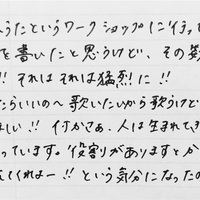 うたというワークショップに行っ
を書いたと思うけど、その
!! それはそれは猛烈に!!
たらいいの〜歌いたいから歌うけど
ほしい!! 何かさぁ、人は生まれてき
っています。役割りがありますとか
てくれよー!! という気分になったの